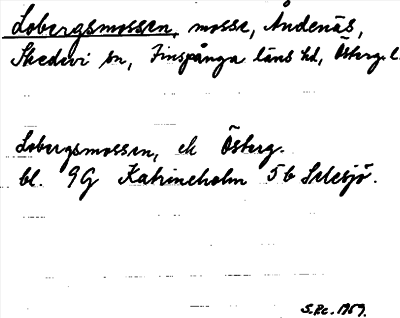 Lobergsmossen, mosse, Åndenäs,
Skedevi sn, Finspånga läns hd, Österg. l.
Lobergsmossen, ek Österg.
bl. 9G Katrineholm 5b
S.Pc. 1969.